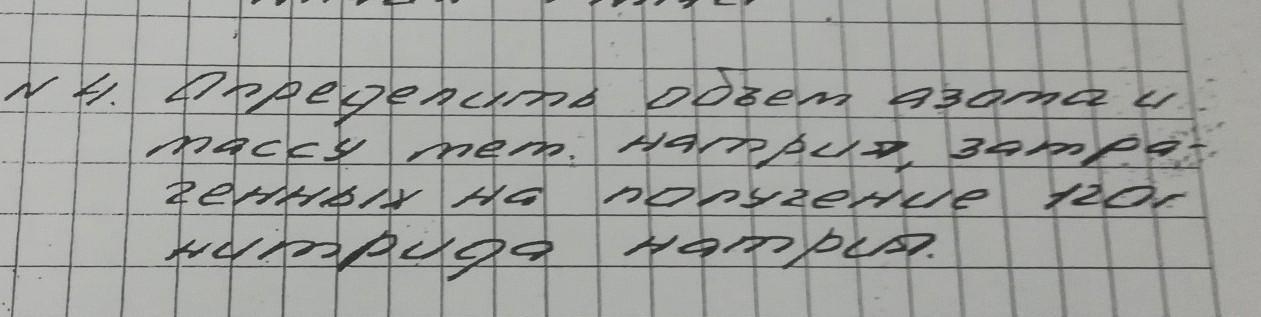 N 4. Определить объем азота и
массу мет. натрия, затра-
ченных на получение 120г
нитрида натрия.